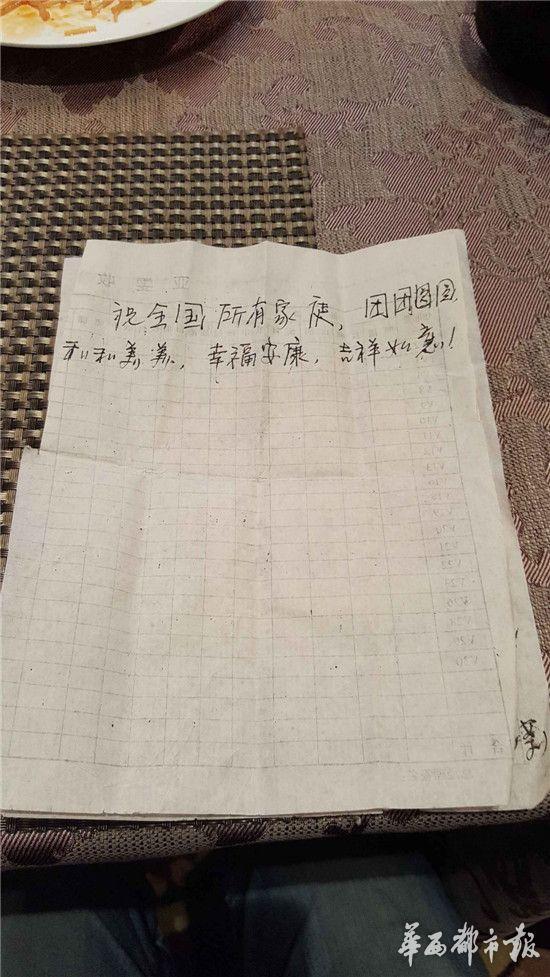 祝全国所有家庭，团团圆圆
和和美美，幸福安康，吉祥如意！
华西都市报